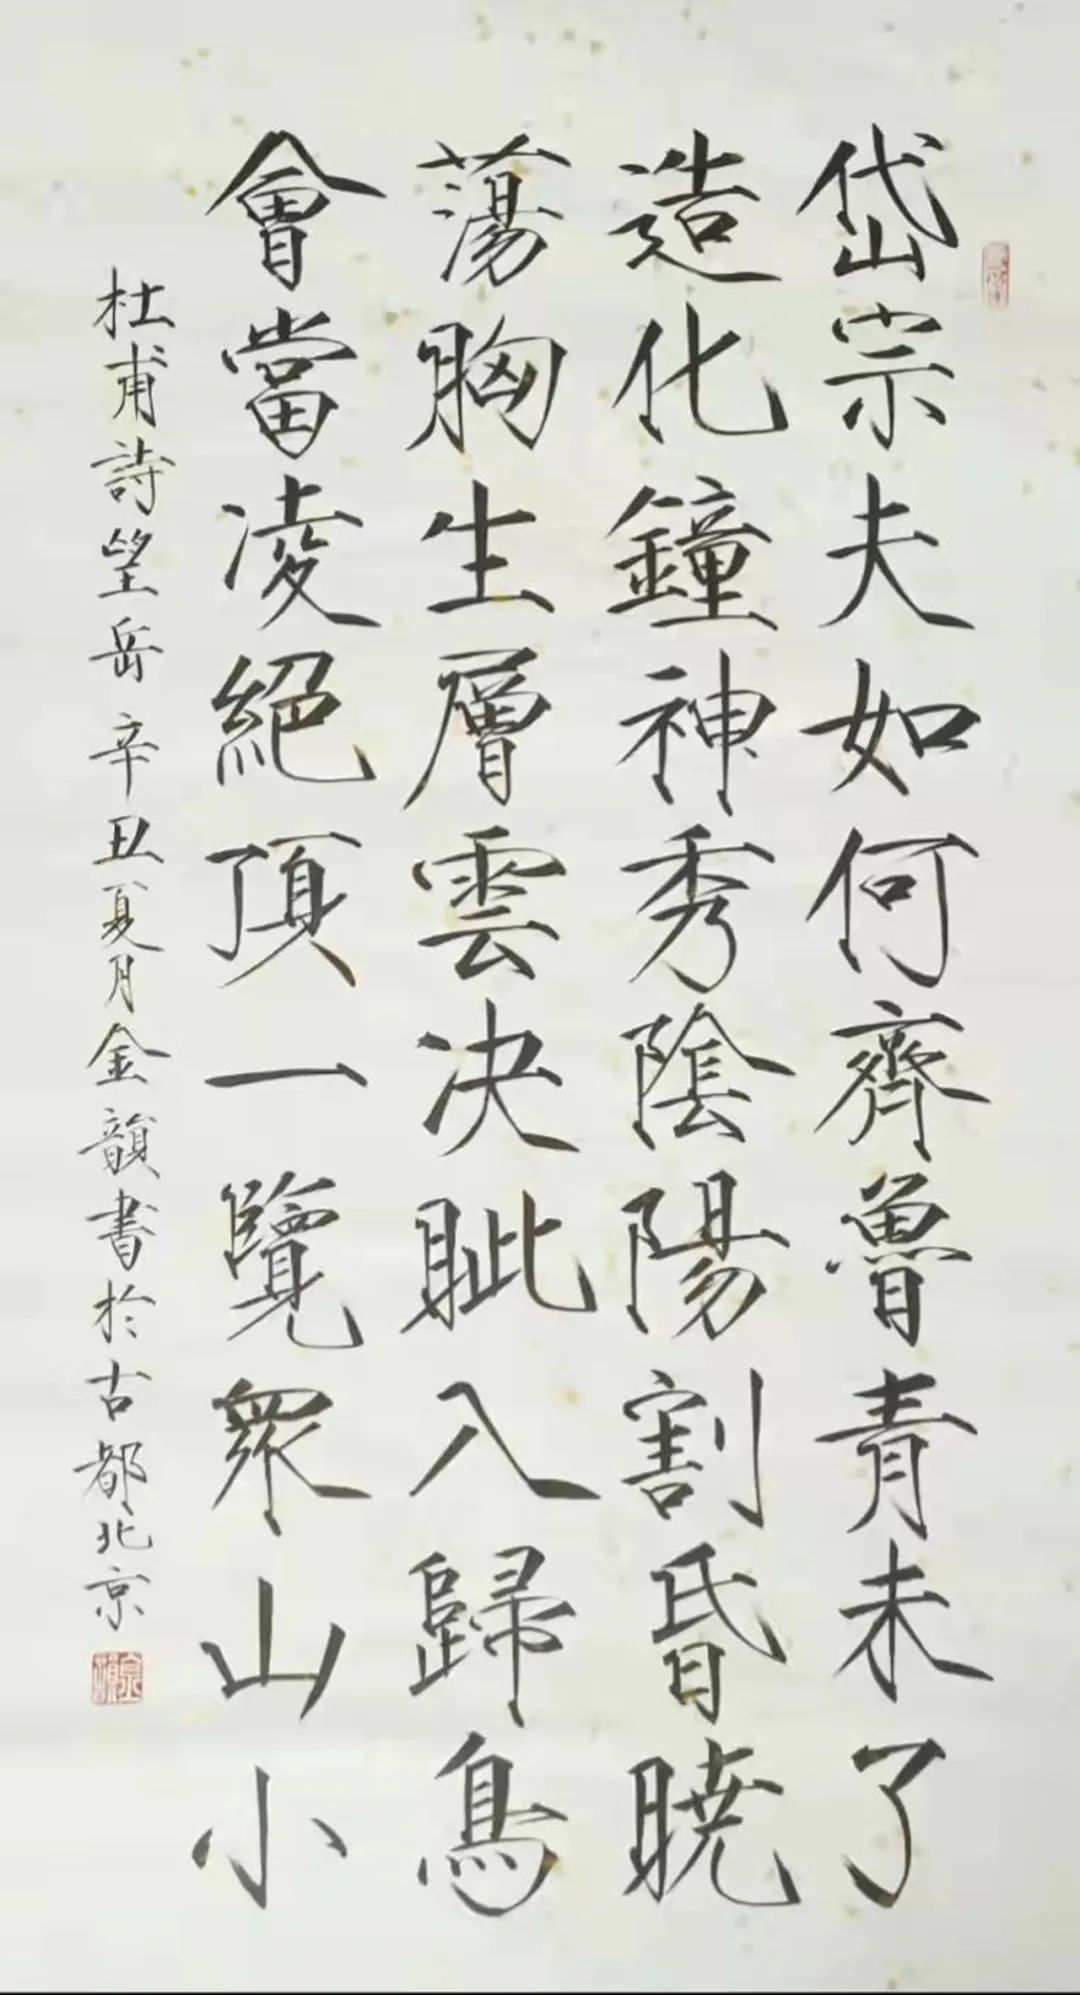 岱宗夫如何齊魯青未了
造化鐘神秀陰陽割昏曉
蕩胸生層雲決眦入歸鳥
會當凌絕頂一覽眾山小
杜甫詩望岳辛丑夏月金韻書於古都北京